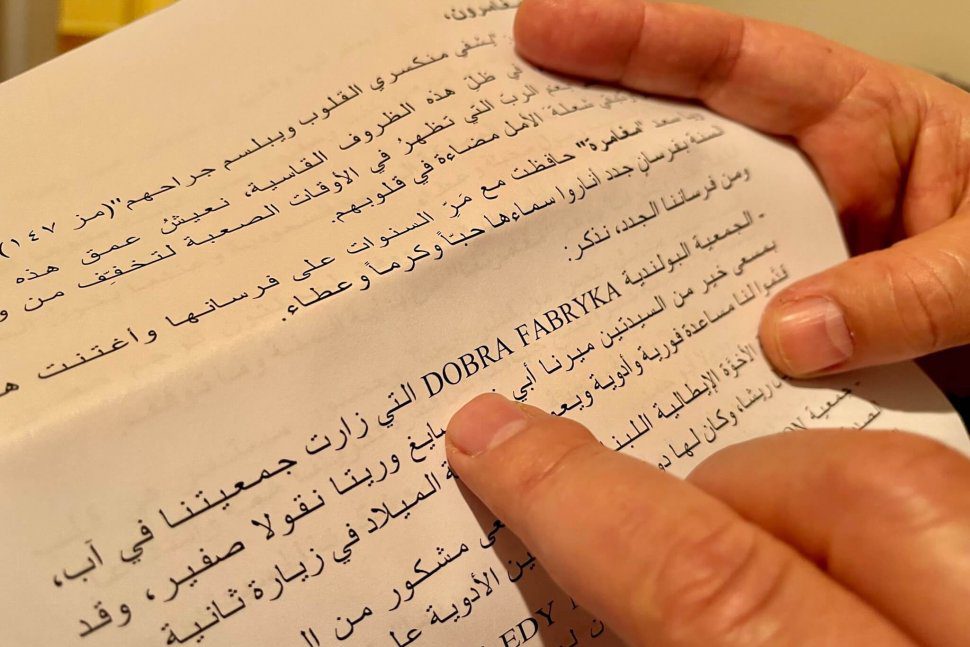 "يشفي منكسري القلوب ويبلسم جراحهم"(مز ١٤٧)
في ظلّ هذه الظروف القاسية، نعيشُ عمق هذه
الربّ التي تظهرُ في الأوقات الصعبة لتخفّف من
شعلة الأمل مضاءة في قلوبهم.
"مغامرة" حافظت مع مَرّ السنوات على فرسانها وأغتنت
السنة بفرسانٍ جدد أناروا سماءها حبّاً وكرماً وعطاء.
ومن فرساننا الجدد، نذكر:
- الجمعية البولندية DOBRA FABRYKA التي زارت جمعيتنا في آب،
بمسعى خير من السيدتين ميرنا أبي وريتا نقولا صفير، وقد
لنا مساعدة فورية وأدوية الميلاد في زيارة ثانية
الأخوّة الإيطالية مشكور من
وكان لها الأدوية
جمعية